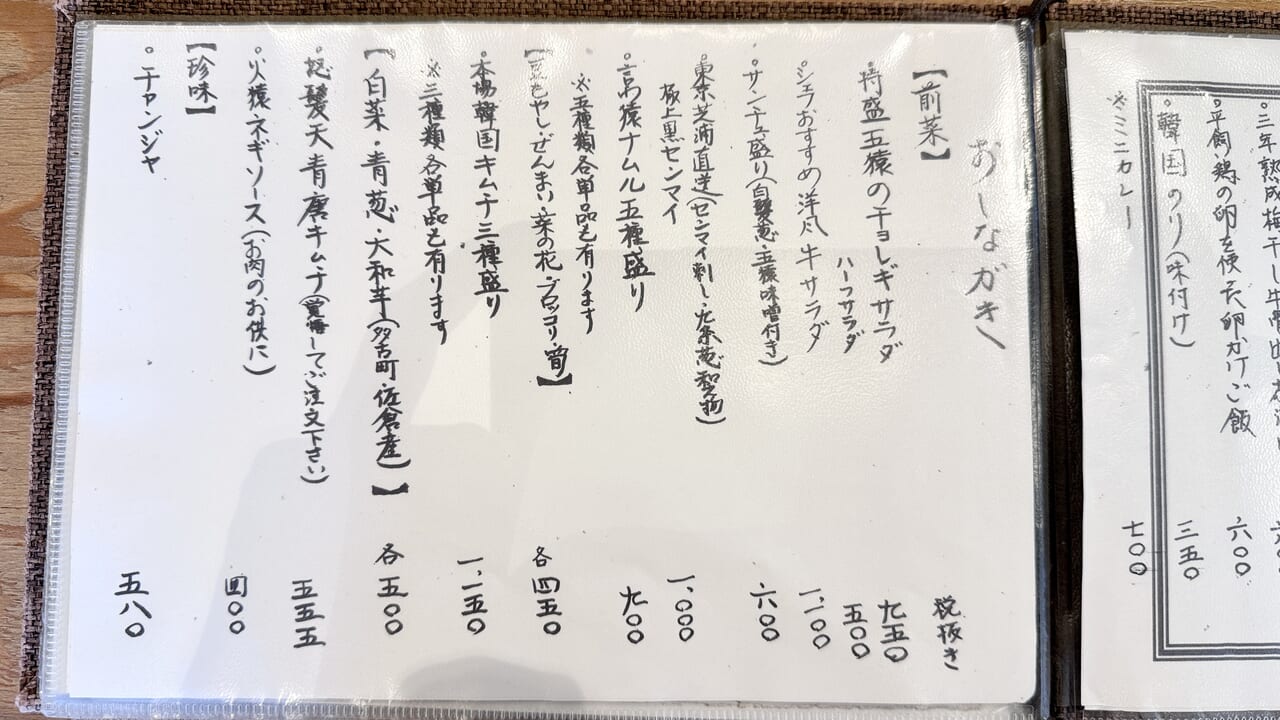 おしながき
税抜き
【前菜】
特盛五猿のチョレギサラダ 九五〇
ハーフサラダ 五〇〇
シェフおすすめ洋風牛サラダ 一、一〇〇
・サンチュ盛り(白髪葱・五猿味噌付き) 六〇〇
・東京芝浦直送(センマイ刺し・九条葱和え物)
極上黒センマイ 一、〇〇〇
ナムル五種盛り 九〇〇
※五種類各単品も有ります
もやし・ぜんまい・菜の花・ブロッコリ・筍】 各四五〇
・本場韓国キムチ三種盛り 一、一五〇
※三種類各単品も有ります
【白菜・青葱・大和芋(多古町 佐倉産)】 各五〇〇
怒髪天青唐キムチ(覚悟してご注文下さい) 五五五
・火猿ネギソース(お肉のお供に) 四〇〇
【珍味】
・チャンジャ 五八〇
・三年熟成梅干し
・平飼鶏の卵を使った卵かけご飯 六〇〇
・韓国のり(味付け) 三五〇
※ミニカレー 七〇〇